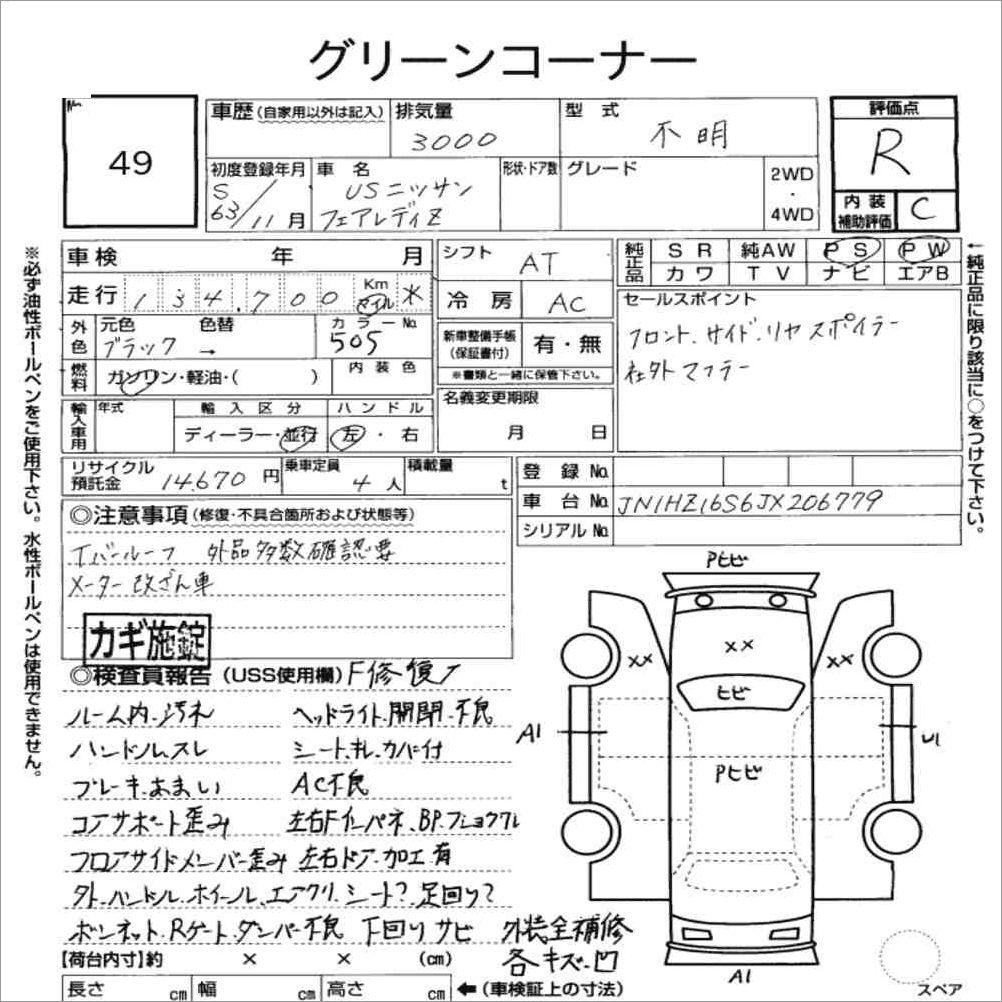 グリーンコーナー
No.
49
車歴(自家用以外は記入)
排気量
3000
型式
不明
評価点
R
内装
補助評価
C
初度登録年月
S
63/11月
車名
USニッサン
フェアレディZ
形状・ドア数
グレード
2WD
・
4WD
車検 年 月
シフト
AT
純正品
SR 純AW PS PW
カワ TV ナビ エアB
走行 134,700 Km マイル
冷房 AC
セールスポイント
フロント.サイド.リヤスポイラー
社外マフラー
外色
元色 色替 カラーNo.
ブラック → 505
新車整備手帳
(保証書付)
有・無
※書類と一緒に保管下さい。
燃料
ガソリン・軽油・( )
内装色
名義変更期限
月 日
輸入車用
年式 輸入区分 ハンドル
ディーラー・並行 左・右
リサイクル
預託金 14.670円
乗車定員
4人
積載量
t
登録No.
車台No. JN1HZ16S6JX206779
シリアルNo.
◎注意事項(修復・不具合箇所および状態等)
Tバールーフ 外品多数確認要
メーター改ざん車
カギ施錠
◎検査員報告(USS使用欄) F修復ノ
ルーム内.汚れ ヘッドライト.開閉.不良
ハンドル.スレ シート.キレ.カバー付
ブレーキ.あまい AC不良
コアサポート歪み 左右Fインパネ.BP.フショクアレ
フロアサイドメンバー歪み 左右ドア.加工有
外.ハンドル.ホイール.エアクリ.シート?.足回り?
ボンネット.Rゲート.ダンパー不良 下回りサビ 外装全補修
各キズ.凹
【荷台内寸】約 × × (cm)
長さ cm 幅 cm 高さ cm ←(車検証上の寸法)
Pヒビ
××
××
××
ヒビ
A1
U1
Pヒビ
A1
スペア
※必ず油性ボールペンをご使用下さい。水性ボールペンは使用できません。
←純正品に限り該当に○をつけて下さい。